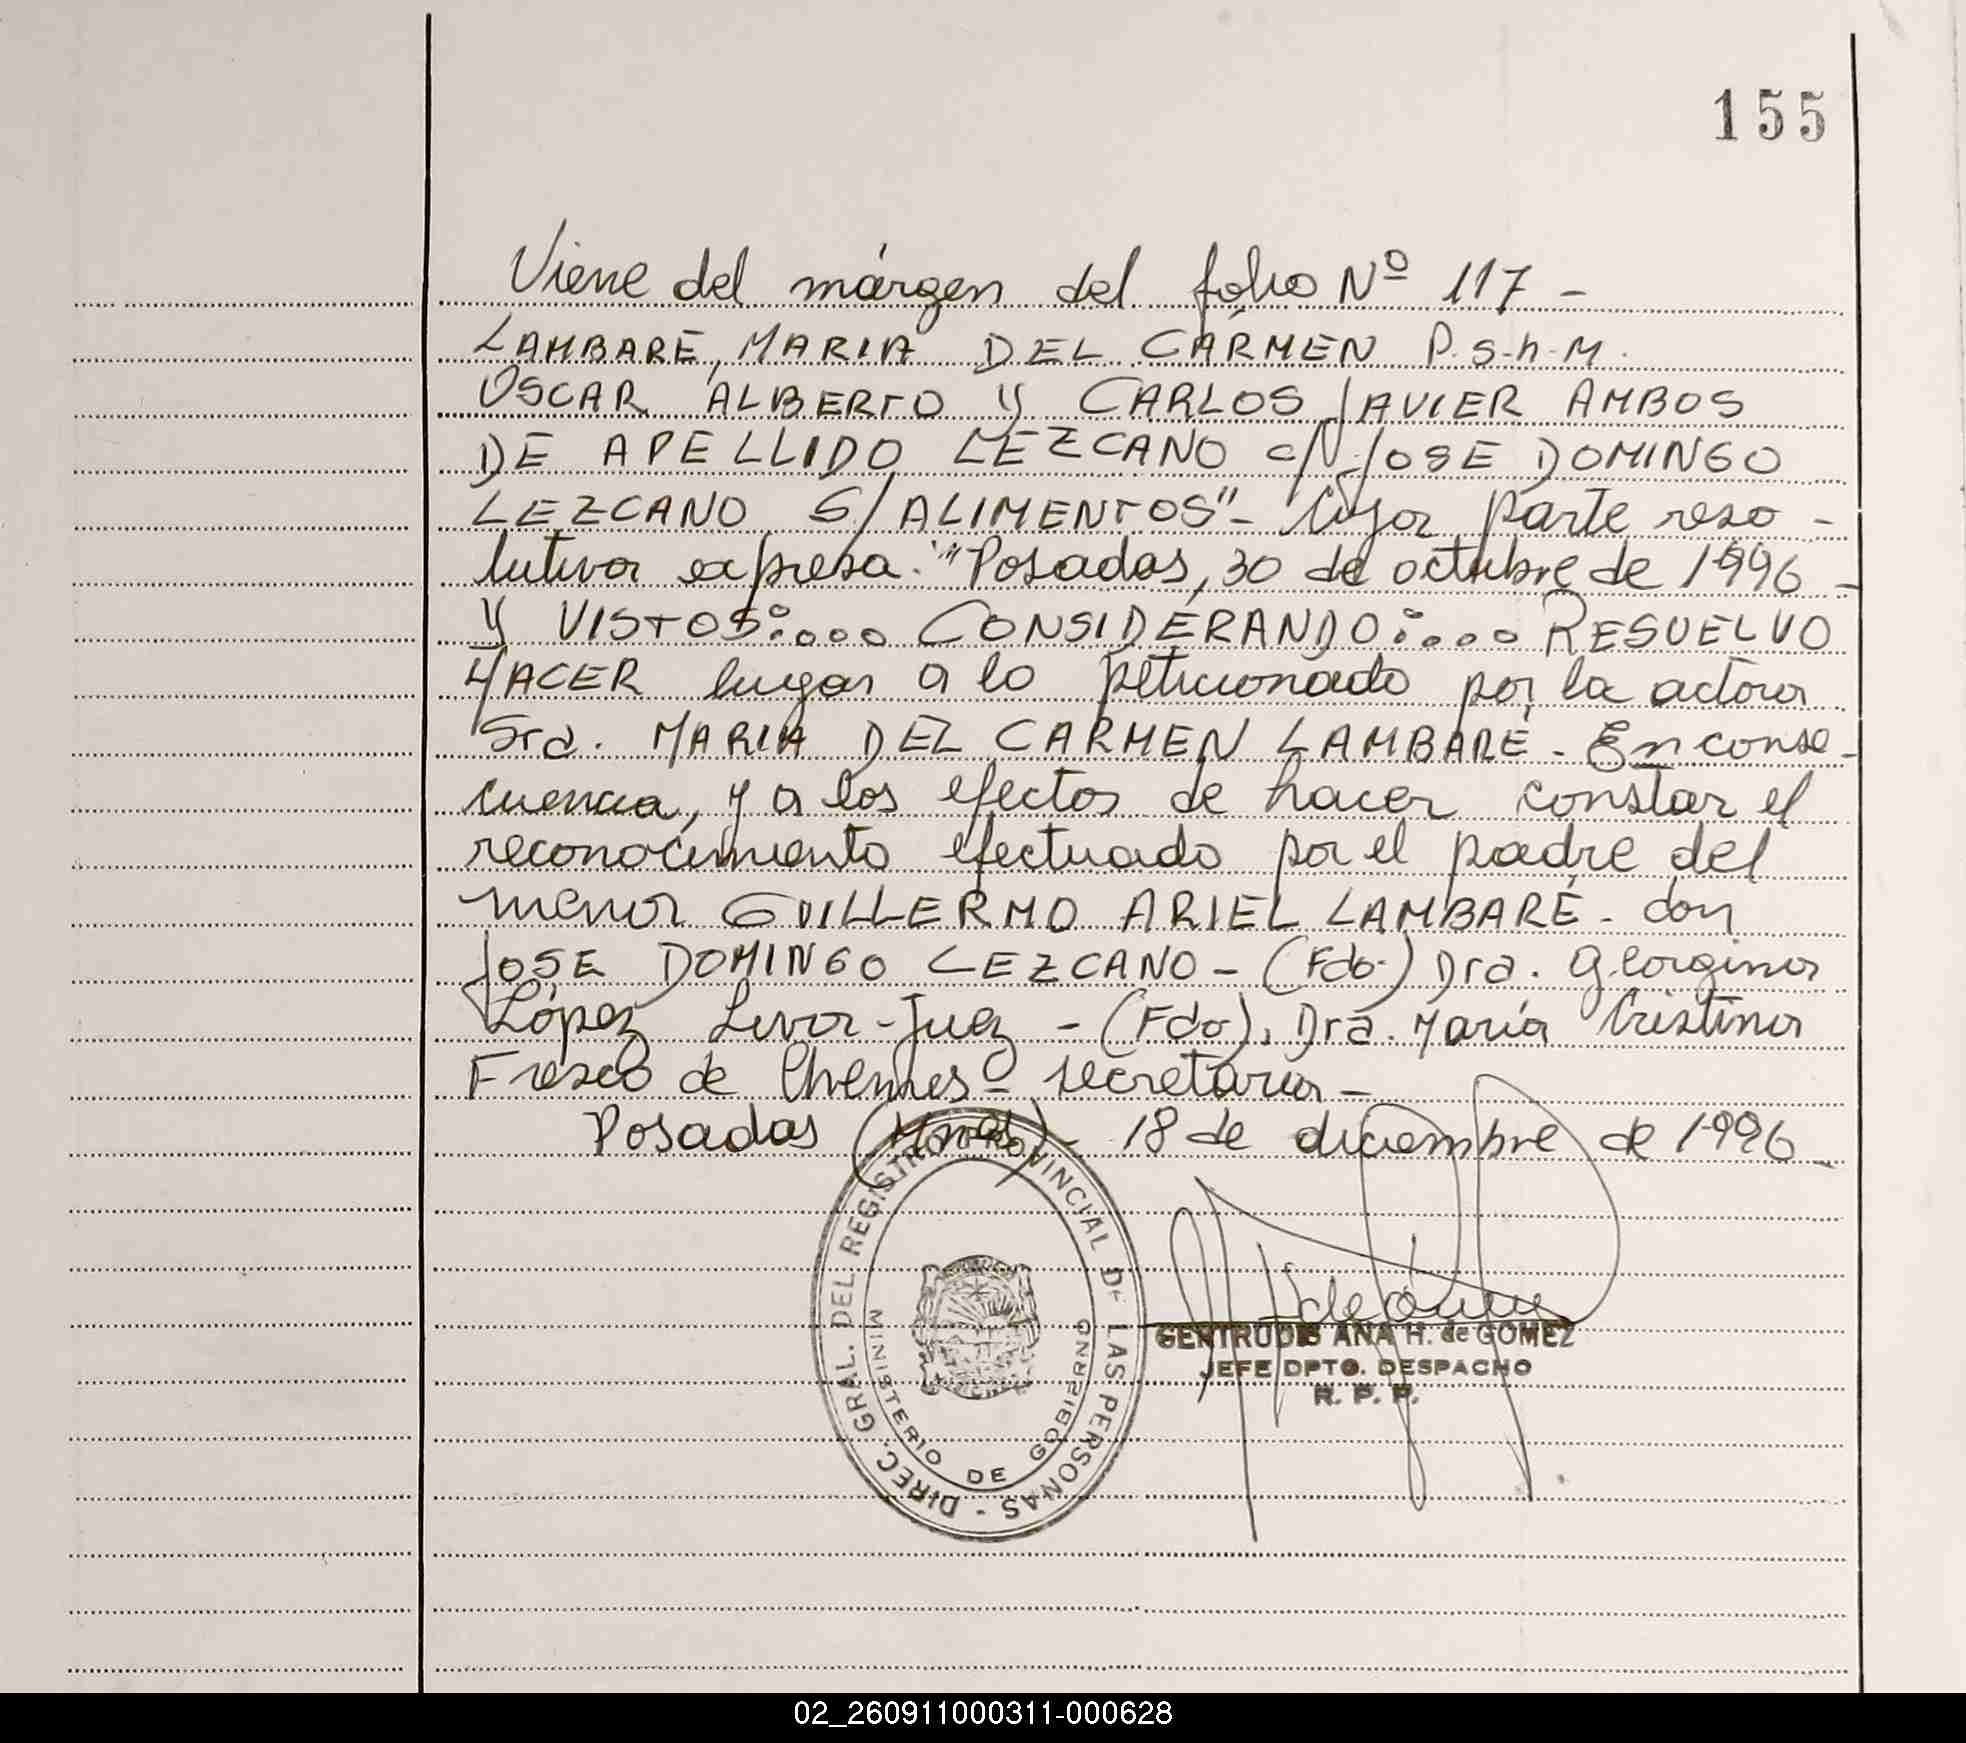 155
Viene del márgen del folio Nº 117 -
LAMBARÉ, MARIA DEL CÁRMEN P.s.h.M.
OSCAR ALBERTO Y CARLOS JAVIER AMBOS
DE APELLIDO LEZCANO c/ JOSE DOMINGO
LEZCANO S/ALIMENTOS"- Cuya parte reso -
lutiva expresa. "Posadas, 30 de octubre de 1996 -
Y VISTOS:... CONSIDERANDO:... RESUELVO
HACER lugar a lo peticionado por la actora
Sra. MARIA DEL CARMEN LAMBARÉ - En conse -
cuencia, y a los efectos de hacer constar el
reconocimiento efectuado por el padre del
menor GUILLERMO ARIEL LAMBARÉ - don
JOSE DOMINGO LEZCANO - (Fdo.) Dra. Georgina
López Liva - Juez - (Fdo), Dra. María Cristina
Fresco de Chemes - secretaria -
Posadas (Mnes) - 18 de diciembre de 1996 -
DIREC. GRAL. DEL REGISTRO PROVINCIAL DE LAS PERSONAS -
MINISTERIO DE GOBIERNO
GERTRUDIS ANA H. de GOMEZ
JEFE DPTO. DESPACHO
R. P. P.
02_260911000311-000628